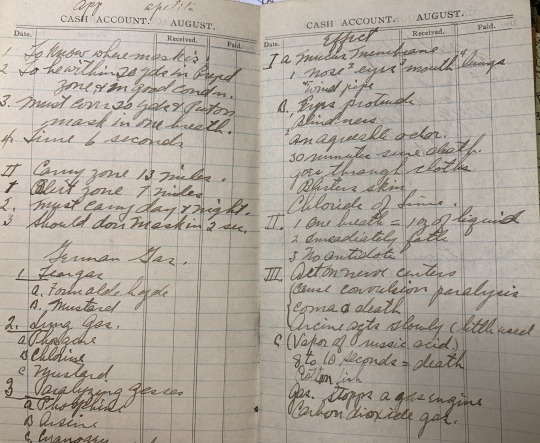 App
CASH ACCOUNT. AUGUST.
Date. Received. Paid.
1 To know where mask is.
2 To be within 20 yds in
zone & in good condn.
3. Must cover 20 yds & put on
mask in one breath.
4. Time 6 seconds
II Carry zone 13 miles.
1 Alert zone 7 miles
2. must carry day & night.
3 Should don mask in 2 sec.
German Gas.
1. Tear gas
a. Formaldehyde
B. Mustard
2. Lung gas.
a Phosgene
B Chlorine
c Mustard
3 Paralyzing gasses
a Phosphine
B Arsine
c. Cyanogen
CASH ACCOUNT. AUGUST.
Effect
Date. Received. Paid.
I a Mucus membrane
1 nose 2 eyes 3 mouth 4 lungs
5 wind pipe
B. Eyes protrude
Blindness
an agreeable odor.
30 minutes sure death.
goes through cloths
Blisters skin
Chloride of lime.
II. 1 one breath = 1 oz of liquid
2 immediately fatle
3 No antidote
III. Act on nerve centers
Cause convulsion paralysis
coma & death
Arcine acts slowly (little used
C (Vapor of prussic acid)
8 to 10 seconds = death
gas. stopps a gas engine
Carbon dioxide gas.